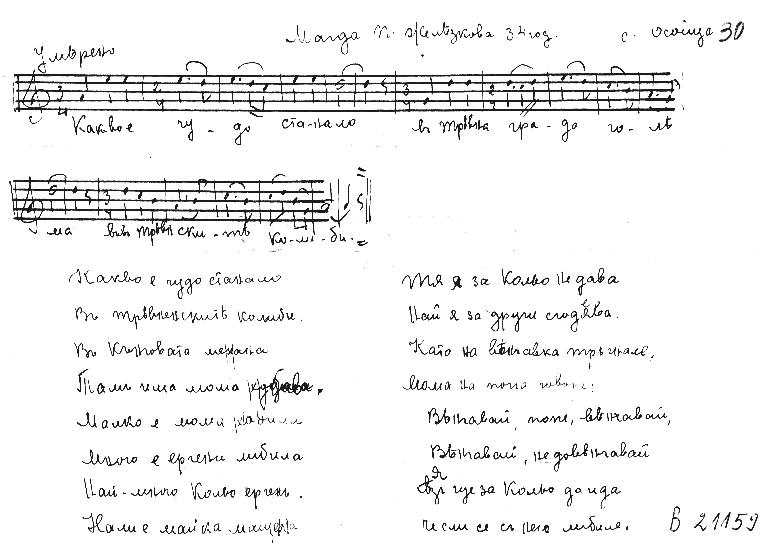 Умѣрено
Магда П. Желѣзкова 34 год. с. Осоица 30
Какво е чу - до ста-нало въ трѣвна гра - до го - лѣ
ма въ трѣвненски - тѣ ко - ли - би.
Какво е чудо станало
Въ трѣвненскитѣ колиби.
Въ Къновата механа
Тамъ има мома хубава.
Малко е мома
Много е ергени либила
Най-много Кольо ергенъ.
Нали е майка мащеха
Тя я за Кольо не дава
Най я за други сгодява.
Като на вѣнчавка тръгнале,
Мома на попа
Вѣнчавай, попе, вѣнчавай,
Вѣнчавай, не довѣнчавай
Я ще за Кольо да ида
че сме се съ него либиле.
В 21159